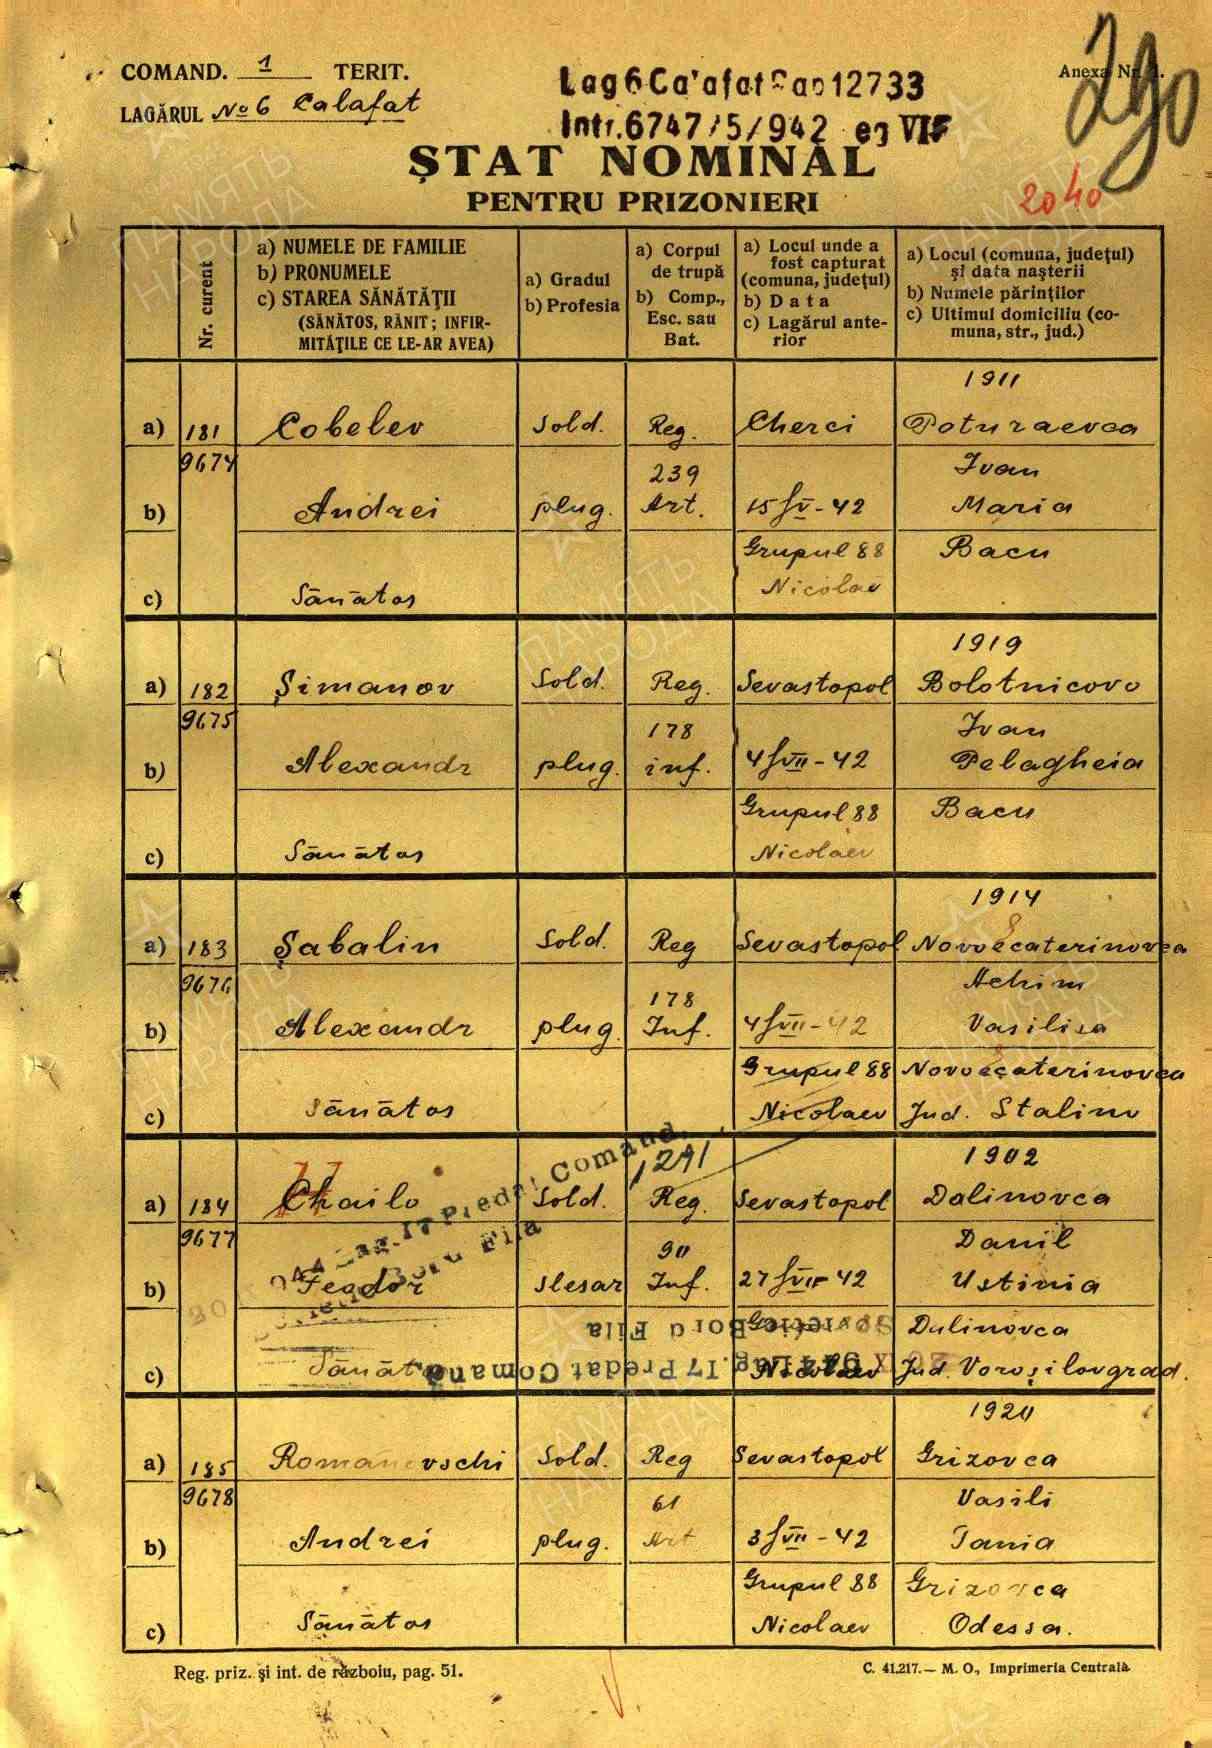 COMAND. 1 TERIT.
LAGĂRUL No 6 Calafat
Lag 6 Ca'afat 12733
Intr. 6747/5/942 eg VIF
Anexa Nr. 1.
290
2040
ȘTAT NOMINAL
PENTRU PRIZONIERI
Nr. curent
a) NUMELE DE FAMILIE
b) PRONUMELE
c) STAREA SĂNĂTĂȚII
(SĂNĂTOS, RĂNIT; INFIR-
MITĂȚILE CE LE-AR AVEA)
a) Gradul
b) Profesia
a) Corpul
de trupă
b) Comp.,
Esc. sau
Bat.
a) Locul unde a
fost capturat
(comuna, județul)
b) Data
c) Lagărul ante-
rior
a) Locul (comuna, județul)
și data nașterii
b) Numele părinților
c) Ultimul domiciliu (co-
muna, str., jud.)
1911
a) 181 Cobelev Sold. Reg. Cherci Poturaevca
9674 239 Ivan
b) Andrei plug. Art. 15/V-42 Maria
Grupul 88 Bacu
c) Sănătos Nicolaev
1919
a) 182 Șimanov Sold. Reg. Sevastopol Bolotnicovo
9675 178 Ivan
b) Alexandr plug. inf. 4/VII-42 Pelagheia
Grupul 88 Bacu
c) Sănătos Nicolaev
1914
a) 183 Șabalin Sold. Reg Sevastopol Novoecaterinovca
9676 178 Achim
b) Alexandr plug. Inf. 4/VII-42 Vasilisa
Grupul 88 Novoecaterinovca
c) Sănătos Nicolaev Jud. Stalino
1291 1902
a) 184 Chailo Sold. Reg. Sevastopol Dalinovca
9677 90 Danil
b) Feodor slesar Inf. 27/VII-42 Ustinia
Dalinovca
c) Sănăt Nicolaev Jud. Voroșilovgrad.
Lag. 17 Predat Comand.
Sovietic Bord Fila
Lag. 17 Predat Comand.
Sovietic Bord Fila
1920
a) 185 Romanovschi Sold. Reg Sevastopol Grizovca
9678 61 Vasili
b) Andrei plug. Art 3/VII-42 Tania
Grupul 88 Grizovca
c) Sănătos Nicolaev Odessa.
Reg. priz. și int. de războiu, pag. 51.
C. 41.217.— M. O., Imprimeria Centrală
ПАМЯТЬ
НАРОДА